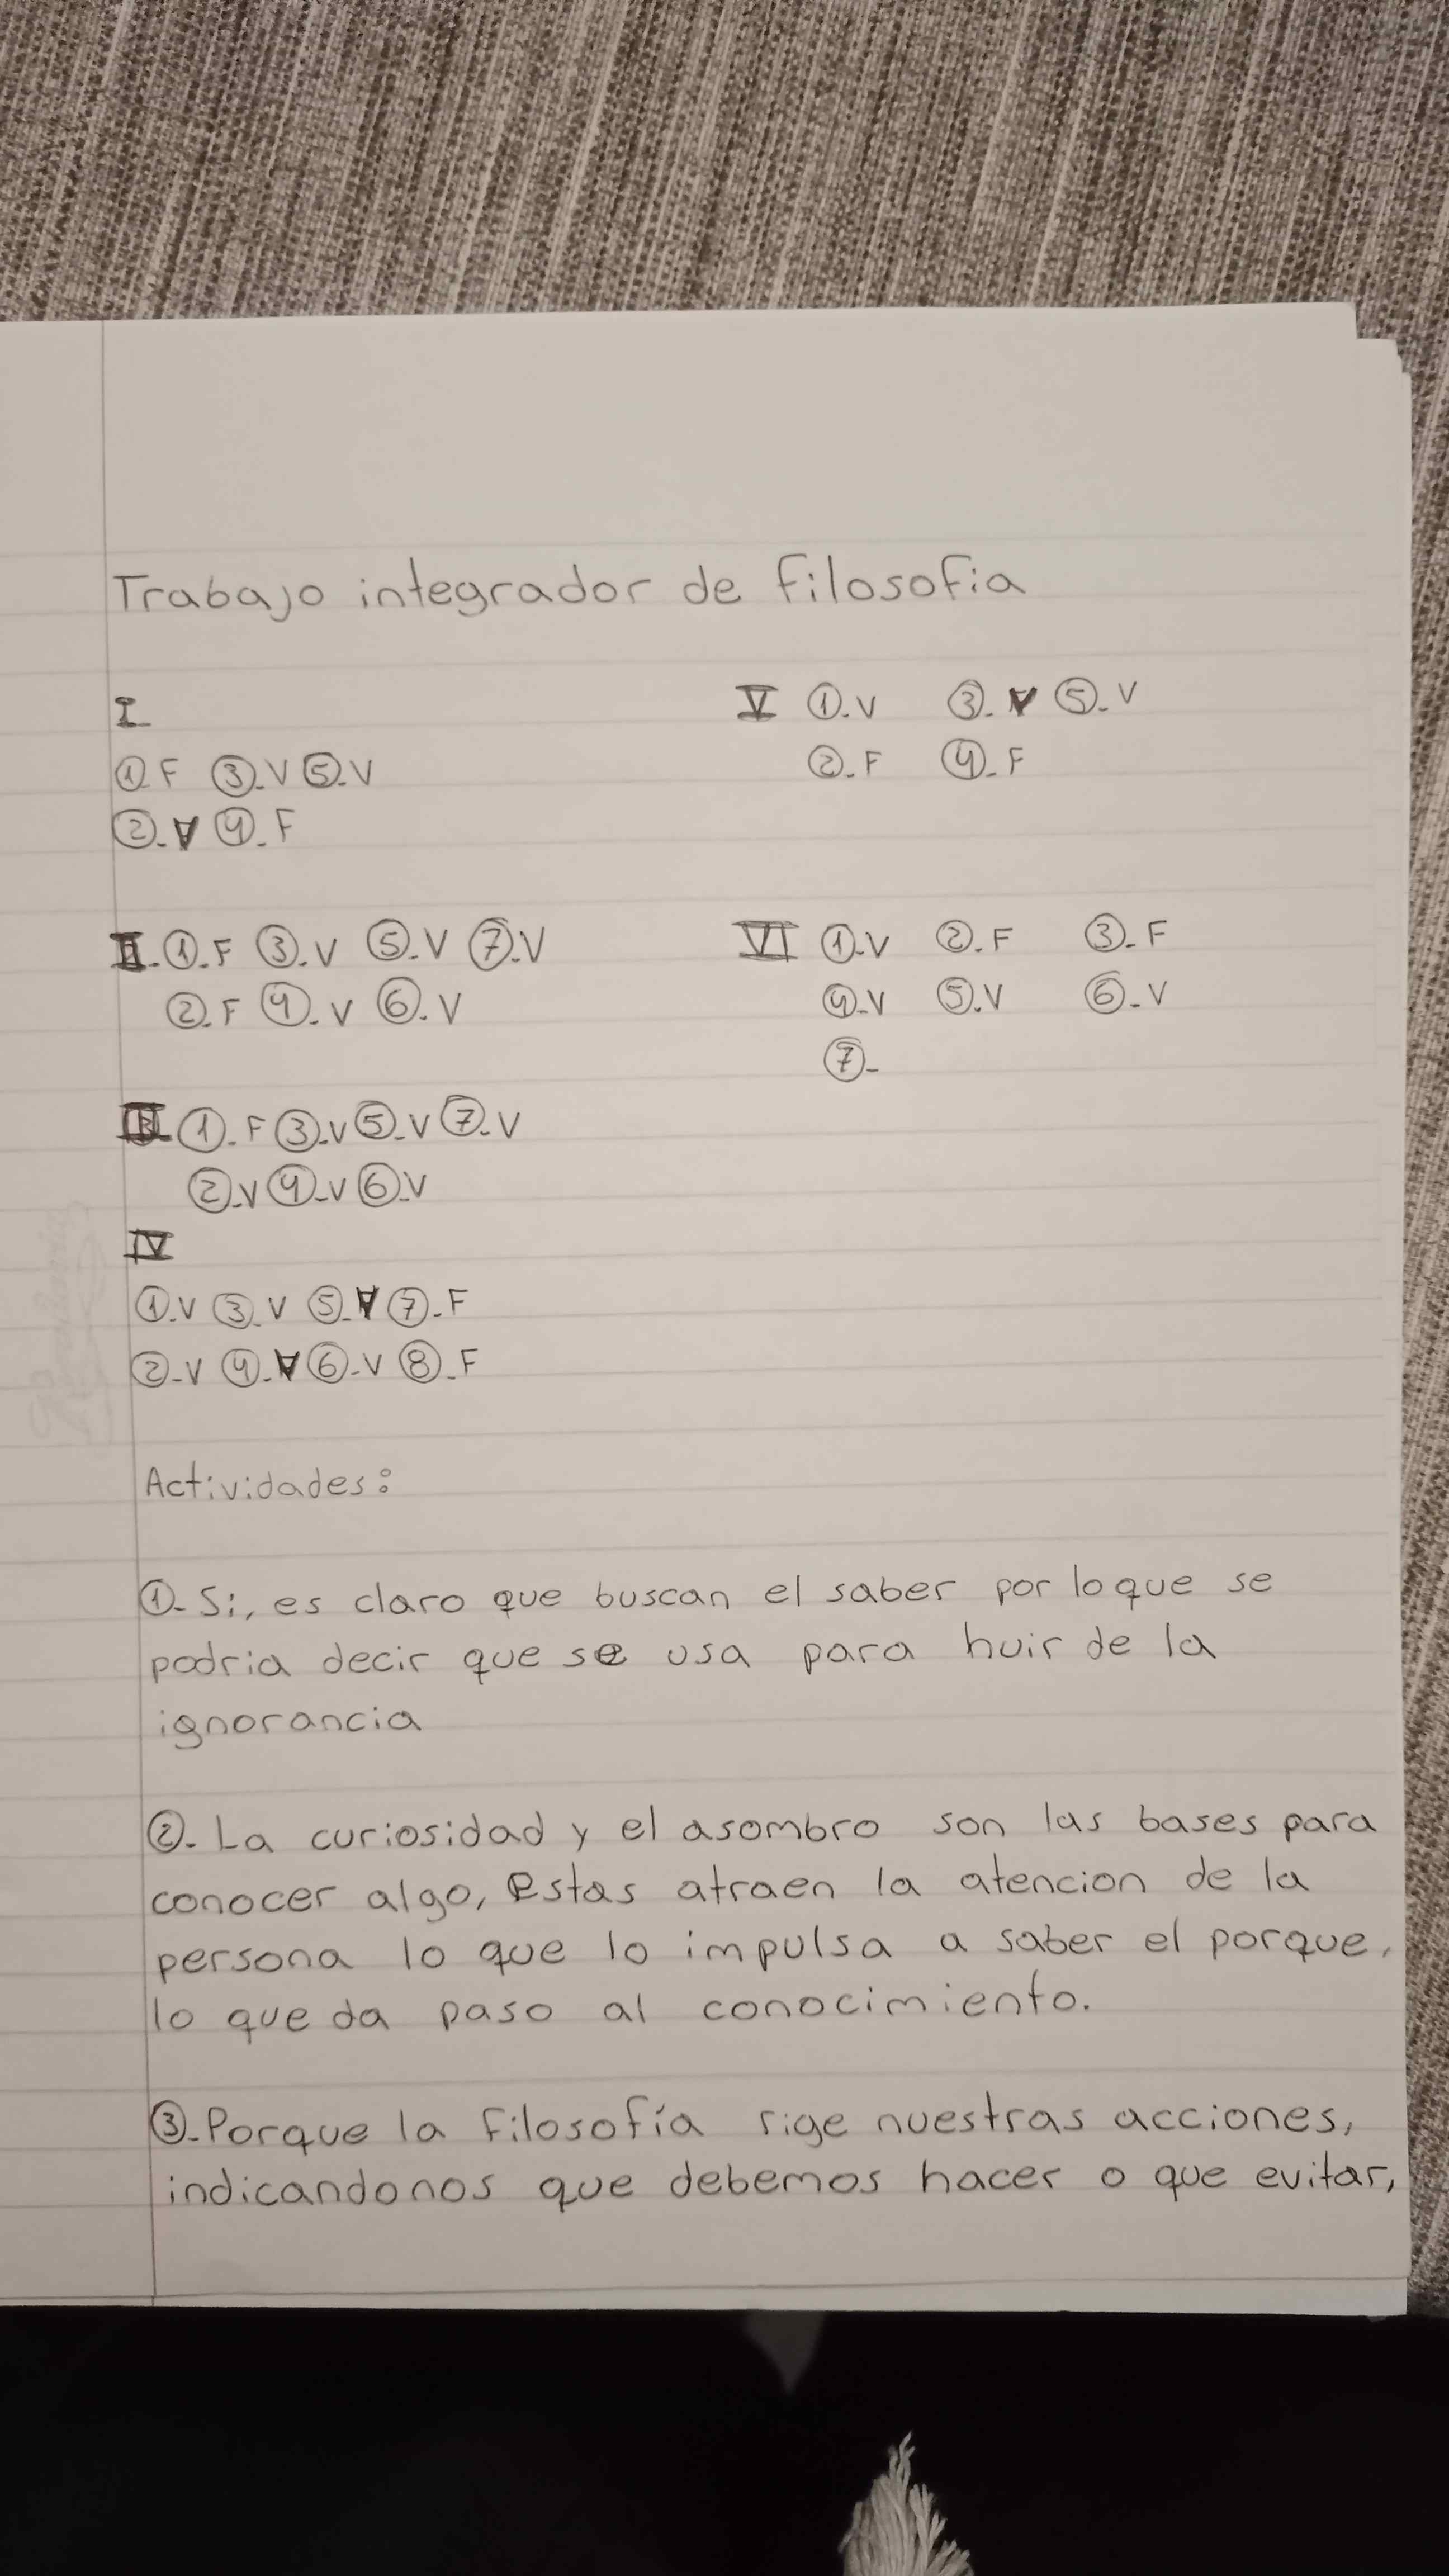 Trabajo integrador de filosofia
I
①.F ③.V ⑤.V
②.V ④.F
II.①.F ③.V ⑤.V ⑦.V
②.F ④.V ⑥.V
III ①.F ③.V ⑤.V ⑦.V
②.V ④.V ⑥.V
IV
①.V ③.V ⑤.V ⑦.F
②.V ④.V ⑥.V ⑧.F
V ①.V ③.V ⑤.V
②.F ④.F
VI ①.V ②.F ③.F
④.V ⑤.V ⑥.V
⑦.
Actividades:
①. Si, es claro que buscan el saber por lo que se
podria decir que se usa para huir de la
ignorancia
②. La curiosidad y el asombro son las bases para
conocer algo, estas atraen la atencion de la
persona lo que lo impulsa a saber el porque,
lo que da paso al conocimiento.
③. Porque la filosofía rige nuestras acciones,
indicandonos que debemos hacer o que evitar,